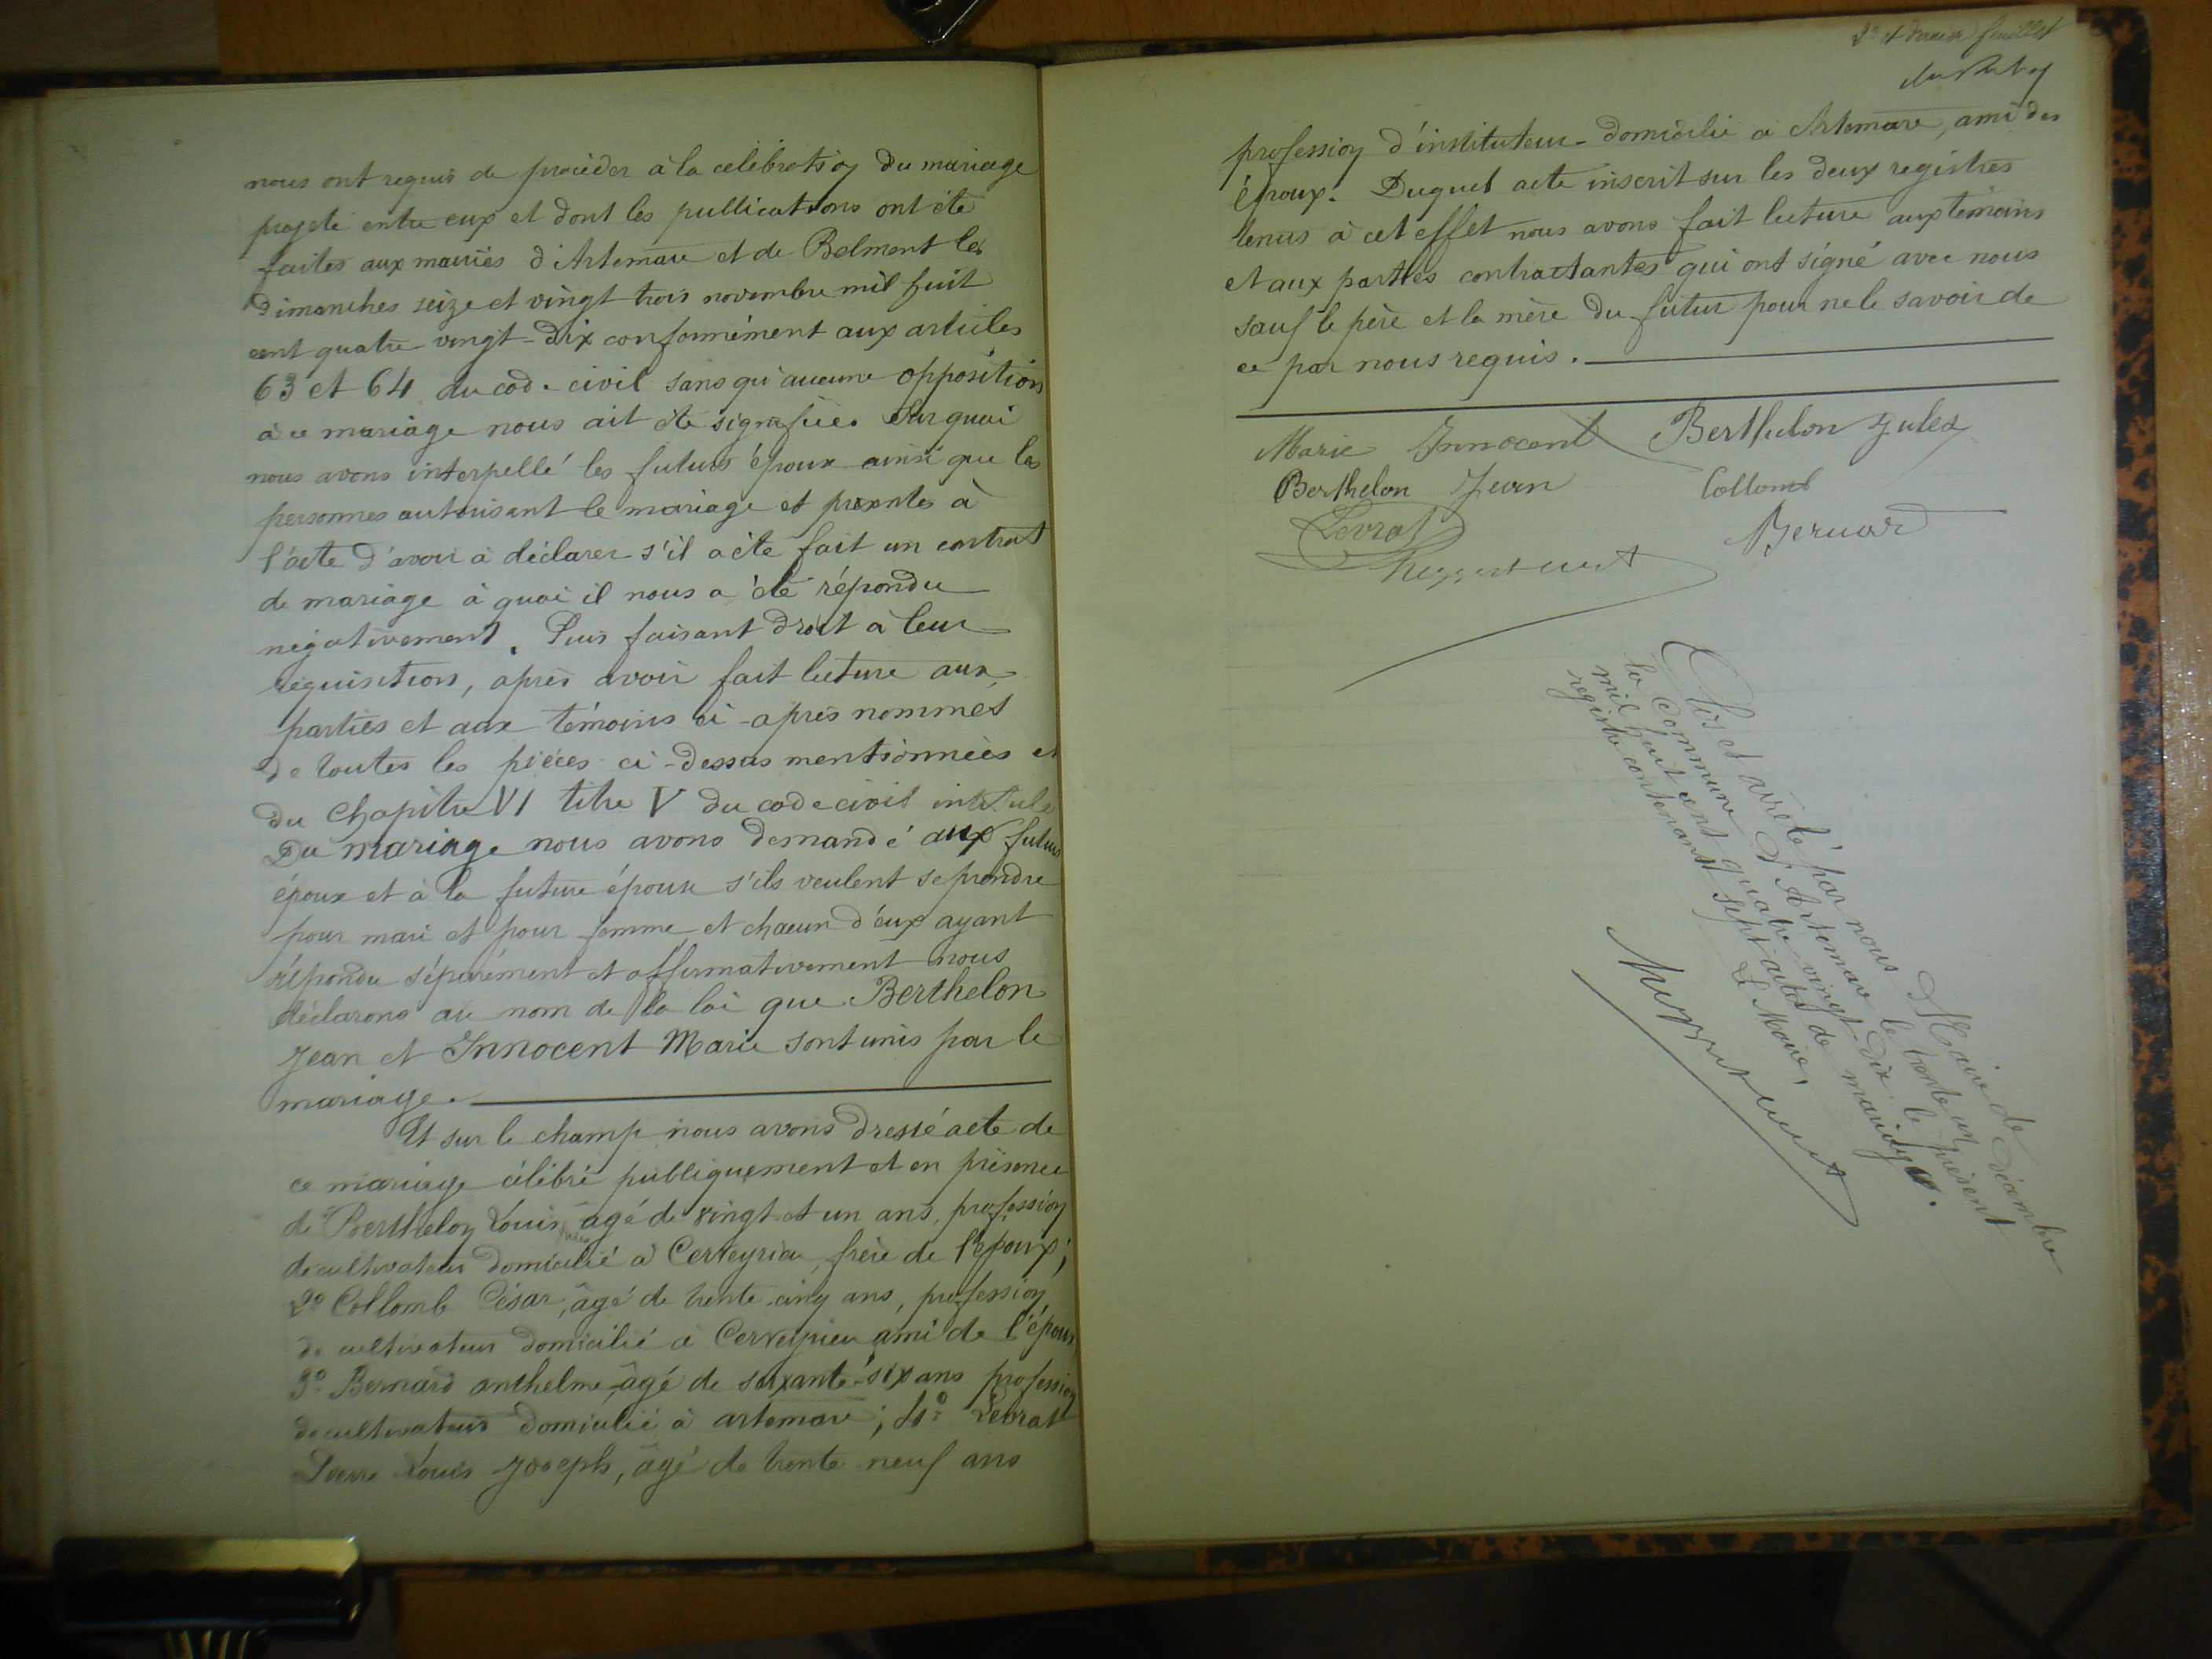 nous ont requis de procéder à la célébration du mariage
projeté entre eux et dont les publications ont été
faites aux mairies d'Artemare et de Belmont les
dimanches seize et vingt trois novembre mil huit
cent quatre vingt-dix conformément aux articles
63 et 64 du code civil sans qu'aucune opposition
à ce mariage nous ait été signifiée. Sur quoi
nous avons interpellé les futurs époux ainsi que les
personnes autorisant le mariage et présentes à
l'acte d'avoir à déclarer s'il a été fait un contrat
de mariage à quoi il nous a été répondu
négativement. Puis faisant droit à leur
réquisition, après avoir fait lecture aux
parties et aux témoins ci-après nommés
de toutes les pièces ci-dessus mentionnées et
du Chapitre VI titre V du code civil intitulé
Du mariage nous avons demandé aux futurs
époux et à la future épouse s'ils veulent se prendre
pour mari et pour femme et chacun d'eux ayant
répondu séparément et affirmativement nous
déclarons au nom de la loi que Berthelon
Jean et Innocent Marie sont unis par le
mariage.
Et sur le champ nous avons dressé acte de
ce mariage célébré publiquement et en présence
de Berthelon Louis Jules âgé de vingt et un ans, profession
de cultivateur domicilié à Cerveyrieu, frère de l'époux;
2° Collomb César, âgé de trente cinq ans, profession
de cultivateur domicilié à Cerveyrieu ami de l'époux
3° Bernard anthelme, âgé de soixante-six ans profession
de cultivateur domicilié à artemare; 4° Levrat
Pierre Louis Joseph, âgé de trente neuf ans
2e et dernier feuillet
profession d'instituteur domicilié à Artemare, ami des
époux. Duquel acte inscrit sur les deux registres
tenus à cet effet nous avons fait lecture aux témoins
et aux parties contractantes qui ont signé avec nous
sauf le père et la mère du futur pour ne le savoir de
ce par nous requis.
Marie Innocent Berthelon Jules
Berthelon Jean Collomb
Levrat Bernard
Clos et arrêté par nous Maire de
la commune d'Artemare le trente un décembre
mil huit cent quatre-vingt-dix le présent
registre contenant sept actes de mariage.
Le Maire,